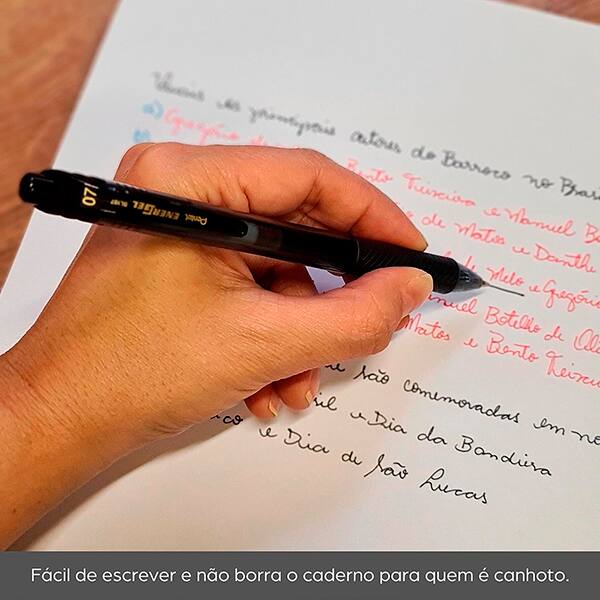 Quais os principais autores do Barroco no Brasi
a) Gregório de Bento Teixeira e Manuel Bo
b) de Matos e Danthe
de Melo e Gregório
Manuel Botelho de Oli
Matos e Bento Teixei
são comemoradas em no
sil e Dia da Bandeira
co e Dia de São Lucas
07 Pentel ENERGEL BL107
Fácil de escrever e não borra o caderno para quem é canhoto.